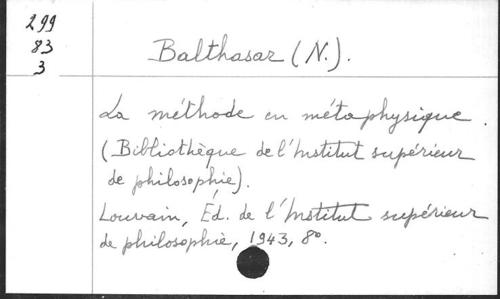 299
83
3
Balthasar (N.).
La méthode en métaphysique.
(Bibliothèque de l'Institut supérieur
de philosophie).
Louvain, Éd. de l'Institut supérieur
de philosophie, 1943, 8º.